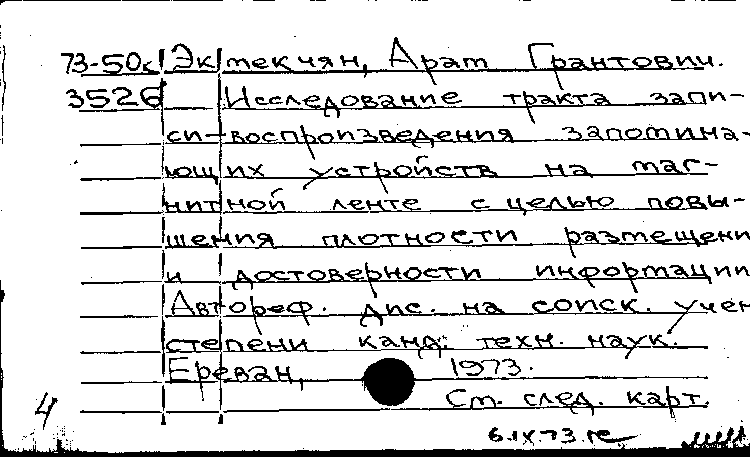 73-50к Экмекчян, Арат Грантович.
3526 Исследование тракта запи-
си-воспроизведения запомина-
ющих устройств на маг-
нитной ленте с целью повы-
шения плотности размещени
и достоверности информации
Автореф. дис. на соиск. учен
степени канд. техн. наук.
Ереван, 1973.
4 См. след. карт.
6.IX.73.